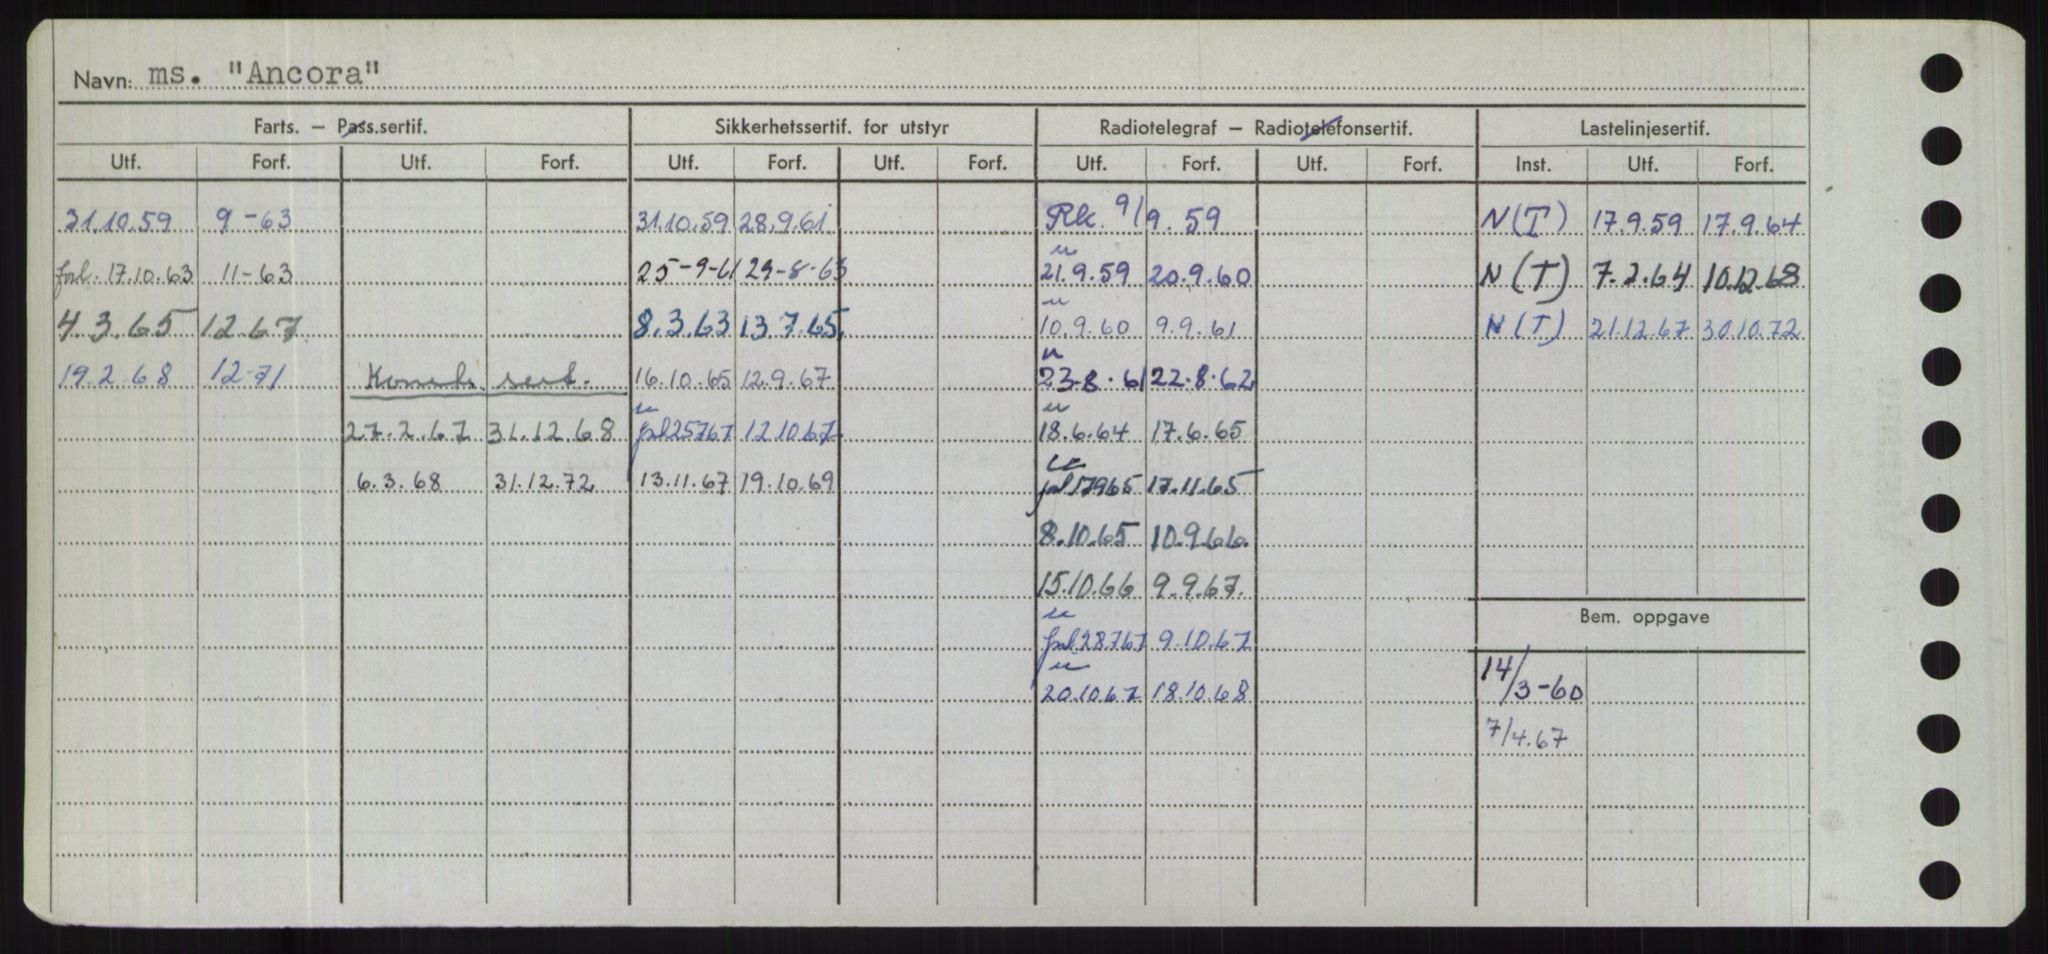 Navn: ms. "Ancora"
Farts. – Pass.sertif. Sikkerhetssertif. for utstyr Radiotelegraf – Radiotelefonsertif. Lastelinjesertif.
Utf. Forf. Utf. Forf. Utf. Forf. Utf. Forf. Utf. Forf. Utf. Forf. Inst. Utf. Forf.
31.10.59 9-63 31.10.59 28.9.61 Rk. 9/9.59 N(T) 17.9.59 17.9.64
forl. 17.10.63 11-63 25-9-61 29-8-63 21.9.59 20.9.60 N(T) 7.2.64 10.12.68
4.3.65 12.67 8.3.63 13.7.65. 10.9.60 9.9.61 N(T) 21.12.67 30.10.72
19.2.68 12-71 sert. 16.10.65 12.9.67 23.8.61 22.8.62
27.2.67 31.12.68 forl 25767 12.10.67 18.6.64 17.6.65
6.3.68 31.12.72 13.11.67 19.10.69 forl 17965 17.11.65
8.10.65 10.9.66.
15.10.66 9.9.67.
Bem. oppgave
forl 28767 9.10.67
14/3-60
20.10.67 18.10.68
7/4.67